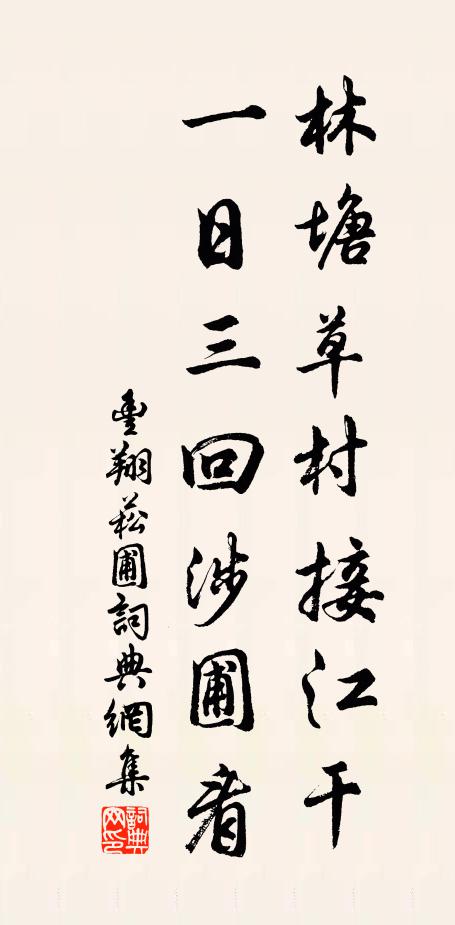 林塘草村接江干
一日三回涉圃看
豊翔菘圃詞典網集
詞典網印